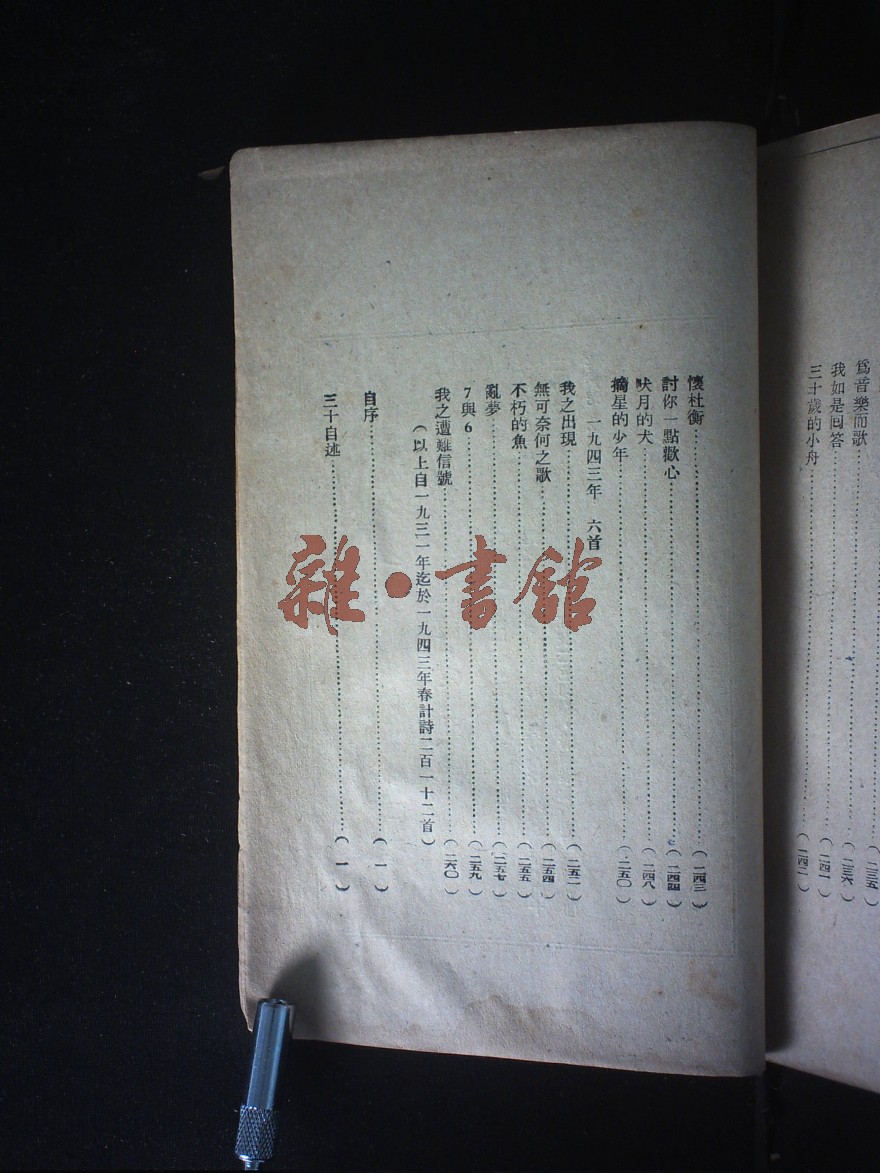 爲音樂而歌……(二三六)
我如是回答……(二四一)
三十歲的小舟……(二四二)
懷杜衡……(二四三)
討你一點歡心……(二四四)
吠月的犬……(二四八)
摘星的少年……(二五〇)
一九四三年 六首
我之出現……(二五二)
無可奈何之歌……(二五四)
不朽的魚……(二五五)
亂夢……(二五七)
7與6……(二五九)
我之遭難信號……(二六〇)
(以上自一九三一年迄於一九四三年春計詩二百一十二首)
自序……(一)
三十自述……(一)
雜·書館